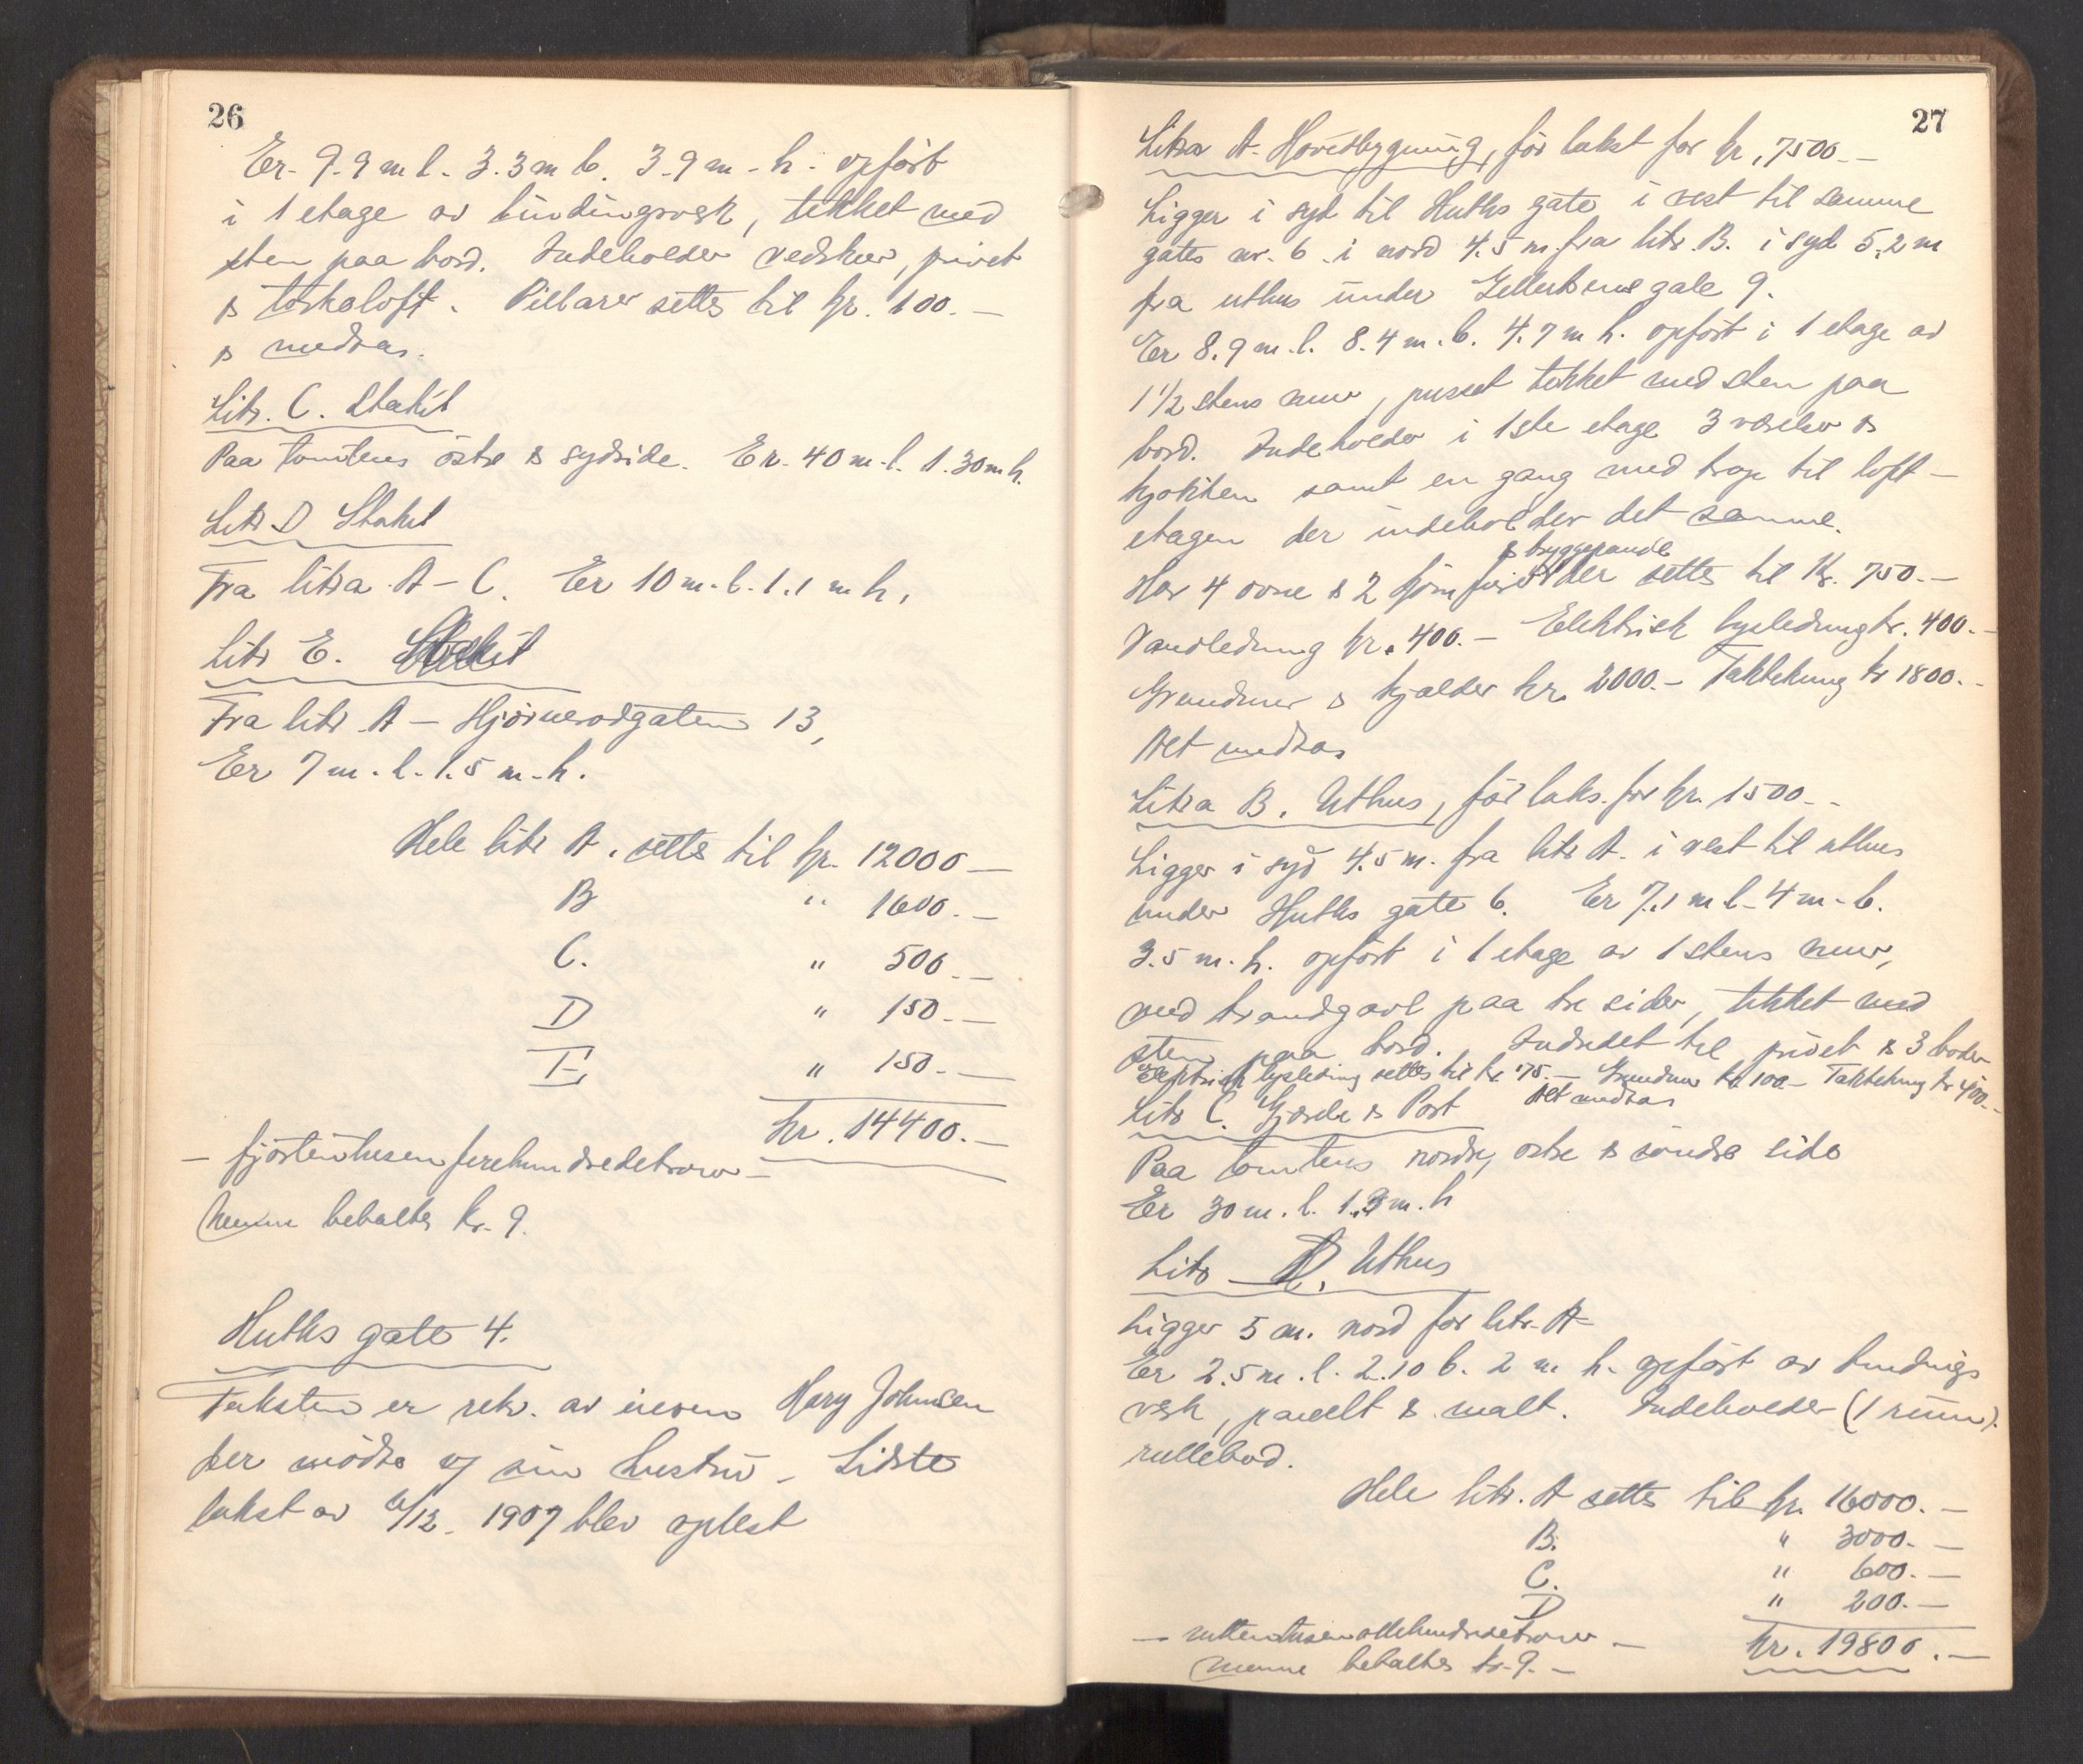 26
Er. 9.9 m l. 3.3 m b. 3.9 m. h. opført
i 1 etage av bindingsverk, tekket med
sten paa bord. Indeholder vedskur, privet
& törkeloft. Pillarer settes til kr. 100.—
& medtas.
Litr. C. Stakit
Paa tomtens östre & sydside. Er. 40 m. l. 1.30 m h.
Litr D Stakit
Fra litra A – C. Er 10 m. l. 1.1 m h.
Litr E. Stakit
Fra litr A – Hjörnerodgaten 13,
Er 7 m. l. 1.5 m. h.
Hele litr A. settes til kr. 12000 —
B " 1600. —
C. " 500. —
D " 150. —
E " 150. —
kr. 14400. —
— fjortentusenfirehundredekroner —
Menn betaltes kr. 9.
Huths gate 4.
Taksten er rekv. av eieren Harry Johnsen
der mödte v/ sin hustru. Sidste
takst av 6/12. 1907 blev oplest
27
Litra A. Hovedbygning, för takst for kr. 7500.—
Ligger i syd til Huths gate i vest til samme
gates nr. 6 i nord 4.5 m. fra litr B. i syd 5.2 m
fra uthus under gate 9.
Er 8.9 m. l. 8.4 m. b. 4.7 m h. opfört i 1 etage av
1 1/2 stens mur, pusset tekket med sten paa
bord. Indeholder i 1ste etage 3 værelser &
kjökken samt en gang med trap til loft-
etagen der indeholder det samme.
& bryggepande
Har 4 ovne & 2 komfurer der settes til Kr. 750.—
Vandledning kr. 400.— Elektrisk lysledning kr. 400.—
Grundmur & kjælder kr. 2000.— Taktekning kr 1800.—
Alt medtas
Litra B. Uthus, för taks. for kr. 1500.—
Ligger i syd 4.5 m. fra litr A. i vest til uthus
under Huths gate 6. Er 7.1 m l. 4 m. b.
3.5 m. h. opfört i 1 etage av 1 stens mur,
med brandgavl paa tre sider, tekket med
sten paa bord. Indredet til privet & 3 boder
Elektrisk lysledning settes til kr. 75.— Grundmur kr. 100.— Taktekning kr 400.—
Alt medtas
Litr C. Gjerde & Port
Paa tomtens nordre, östre & söndre side
Er 30 m. l. 1.9 m. h
Litr D. Uthus
Ligger 5 m. nord for litr. A
Er 2.5 m. l. 2.10 b. 2 m. h. opfört av bindings
verk, panelt & malt. Indeholder (1 rum).
rullebod.
Hele litr. A settes til kr. 16000. —
B. " 3000. —
C. " 600. —
D " 200. —
— nittentusenottehundredekroner — kr. 19800. —
Menne betaltes kr. 9. —